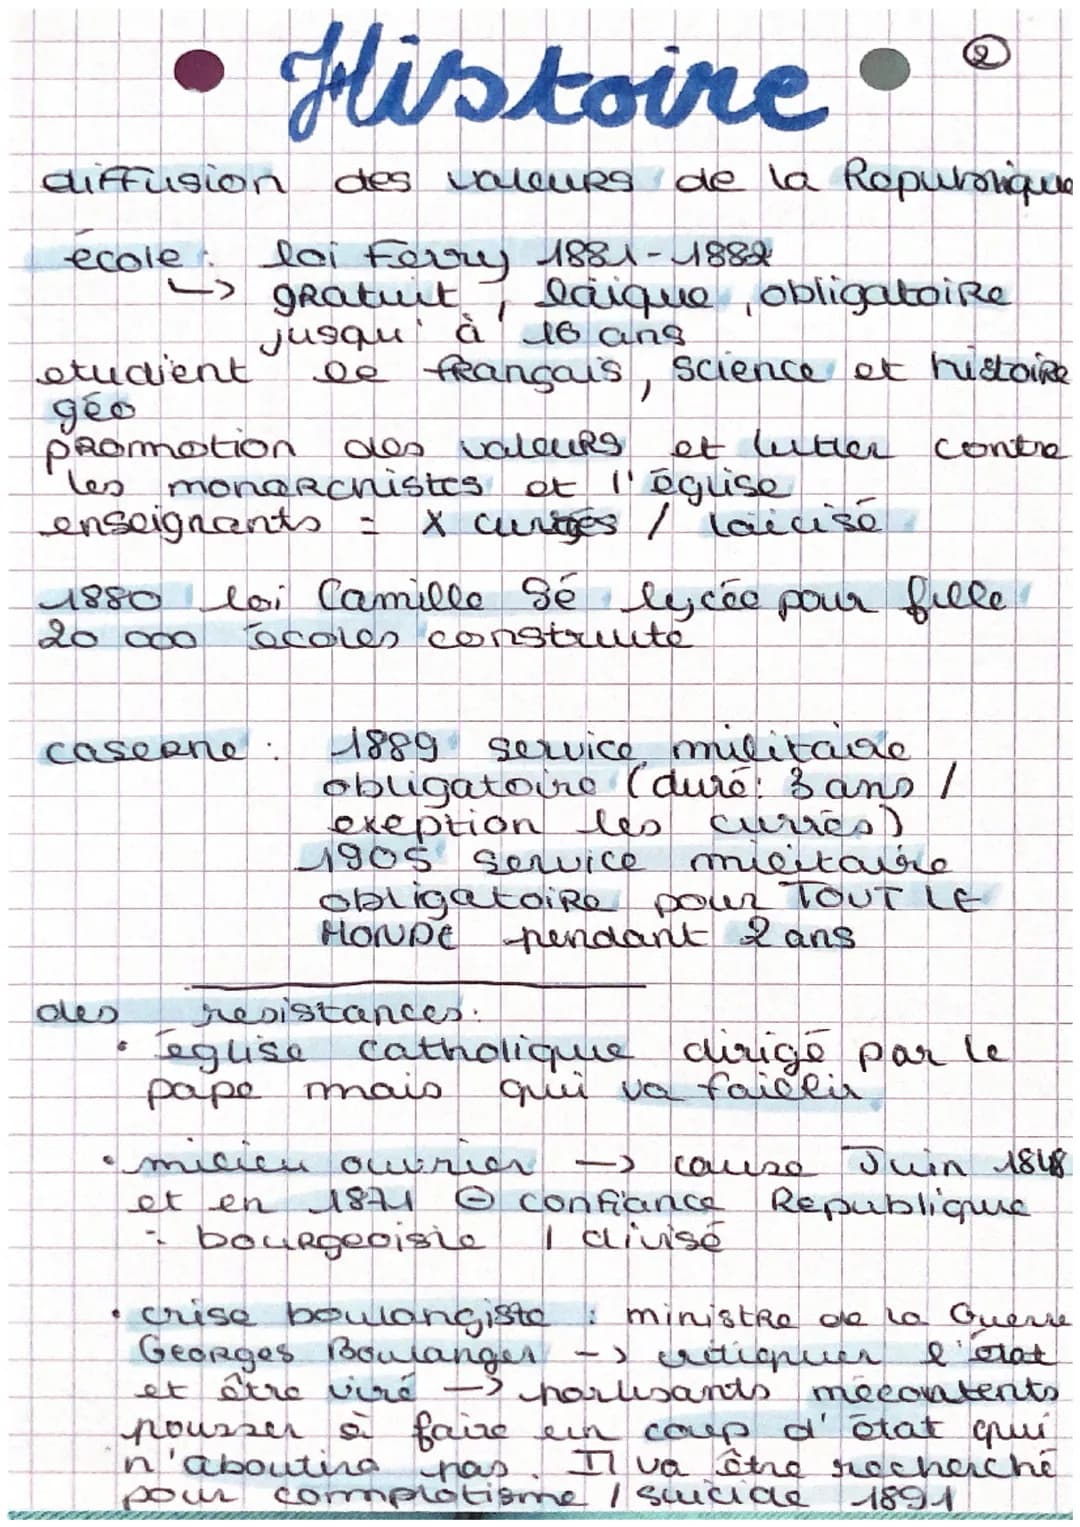 Histoire
2
diffusion des valeurs de la Republique
école : loi Ferry 1881-1882
↳ gratuit, laïque, obligatoire
jusqu'à 16 ans
etudient le français, science et histoire
géo
promotion des valeurs et lutter contre
les monarchistes et l'église
enseignants = X curés / laïcisé
1880 loi Camille Sé lycée pour fille
20 000 écoles construite
caserne : 1889 service militaire
obligatoire (duré: 3 ans /
exeption les currés)
1905 service militaire
obligatoire pour TOUT LE
MONDE pendant 2 ans
des resistances:
• église catholique dirigé par le
pape mais qui va faiblir
• milieu ouvrier → cause Juin 1848
et en 1871 ⊖ confiance Republique
÷ bourgeoisie / divisé
• crise boulangiste : ministre de la Guerre
Georges Boulanger → critiquer l'état
et être viré → partisants mécontents
pousser à faire un coup d'état qui
n'aboutira pas. Il va être recherché
pour complotisme / suicide 1891